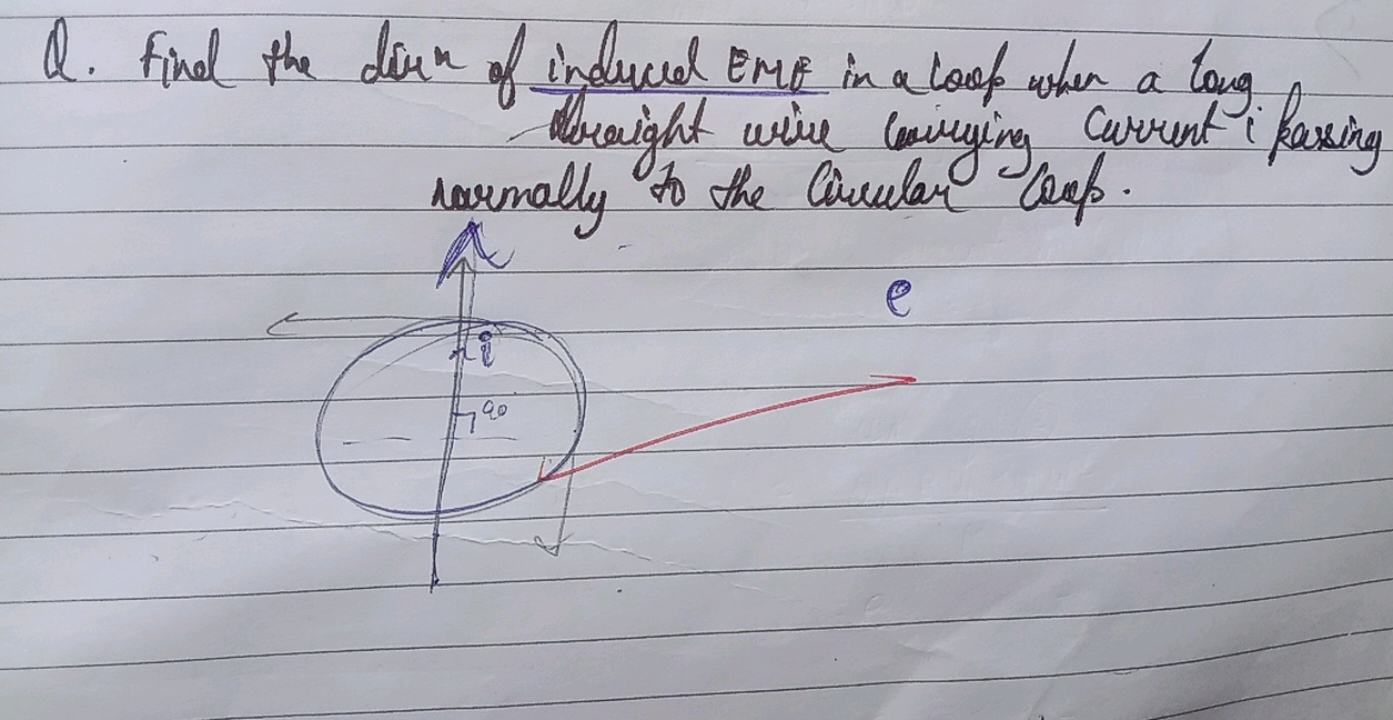 Q. Find the dirn of induced EMF in a loop when a long
straight wire carrying current i passing
normally to the circular loop.
e
i
90